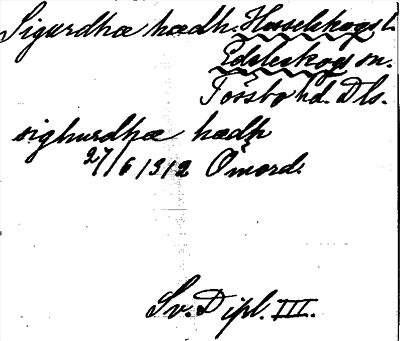 Sigurdhæ hædh. Hesselskogs t.
Edsleskogs sn.
Tössbo hd. Dls.
sighurdhæ hædh
27/6 1312 Omord.
Sv. Dipl. III.